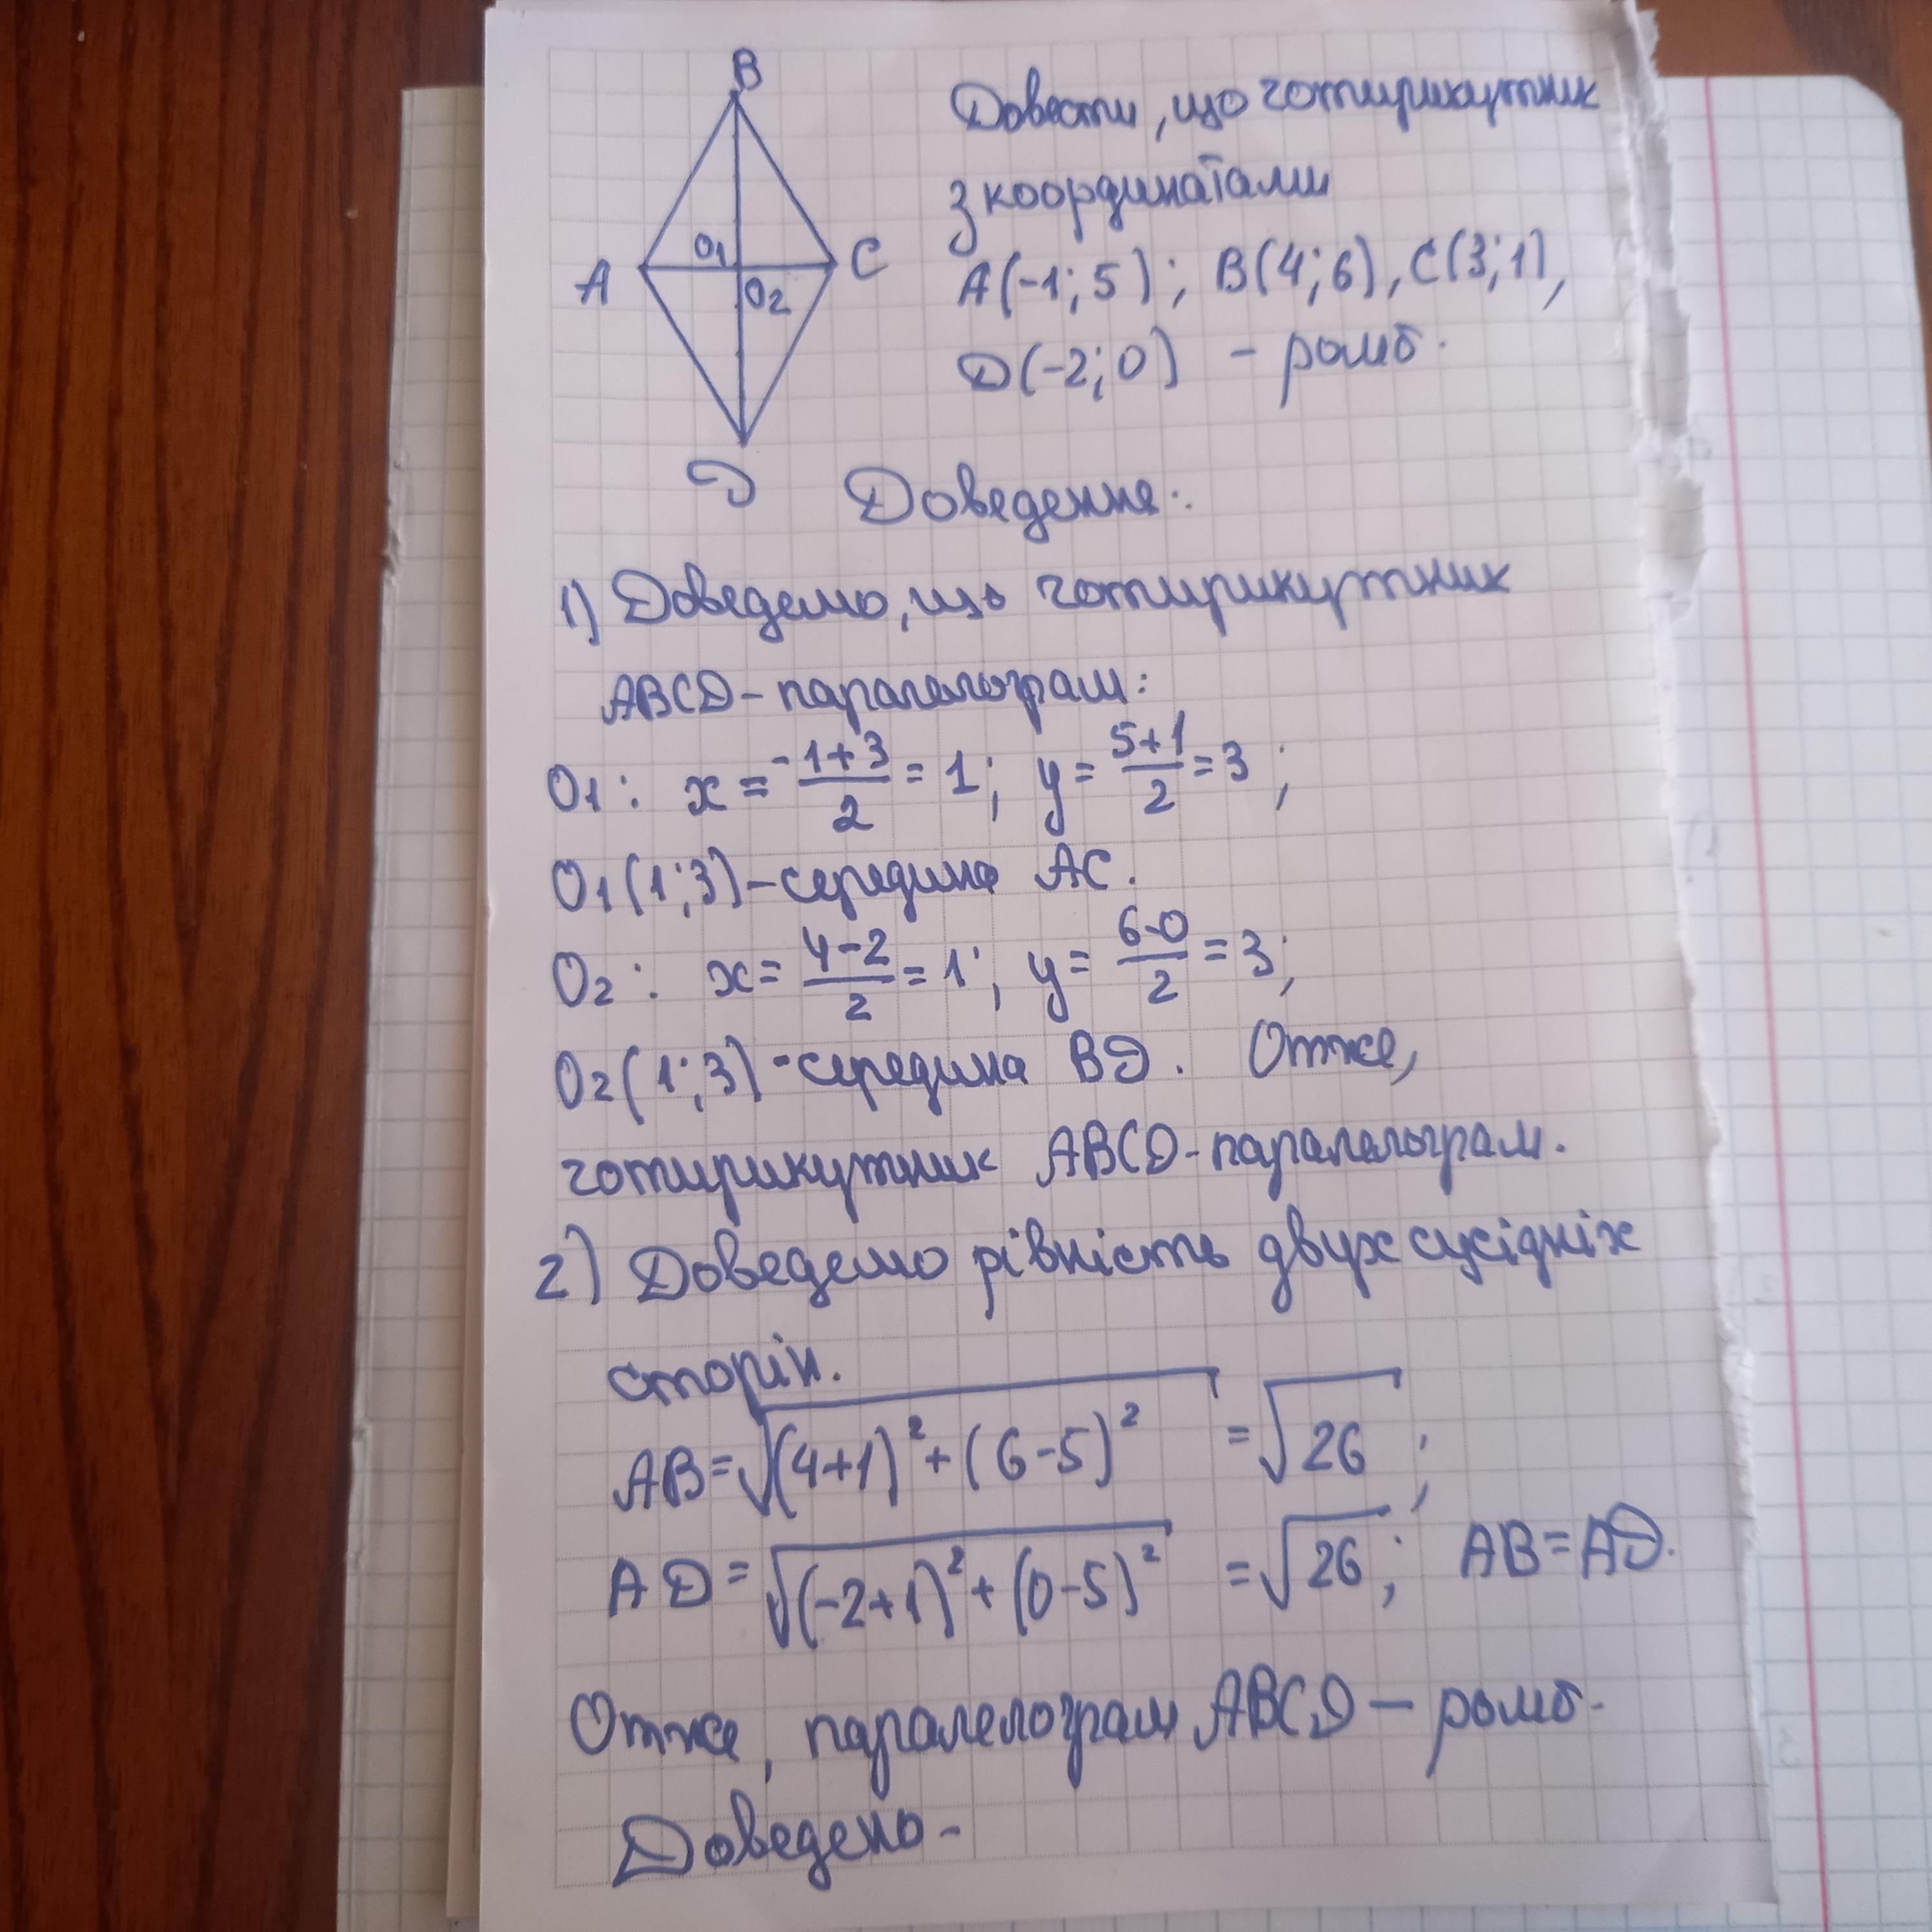 B
A
O₁
O₂
C
D
Довести, що чотирикутник
з координатами
A(-1;5); B(4;6), C(3;1),
D(-2;0) - ромб.
Доведення:
1) Доведемо, що чотирикутник
ABCD - паралелограм:
O₁: x = (-1+3)/2 = 1; y = (5+1)/2 = 3;
O₁(1;3) - середина AC.
O₂: x = (4-2)/2 = 1; y = (6-0)/2 = 3;
O₂(1;3) - середина BD. Отже,
чотирикутник ABCD - паралелограм.
2) Доведемо рівність двух сусідніх
сторін.
AB = √((4+1)² + (6-5)²) = √26;
AD = √((-2+1)² + (0-5)²) = √26; AB = AD.
Отже, паралелограм ABCD - ромб.
Доведено.